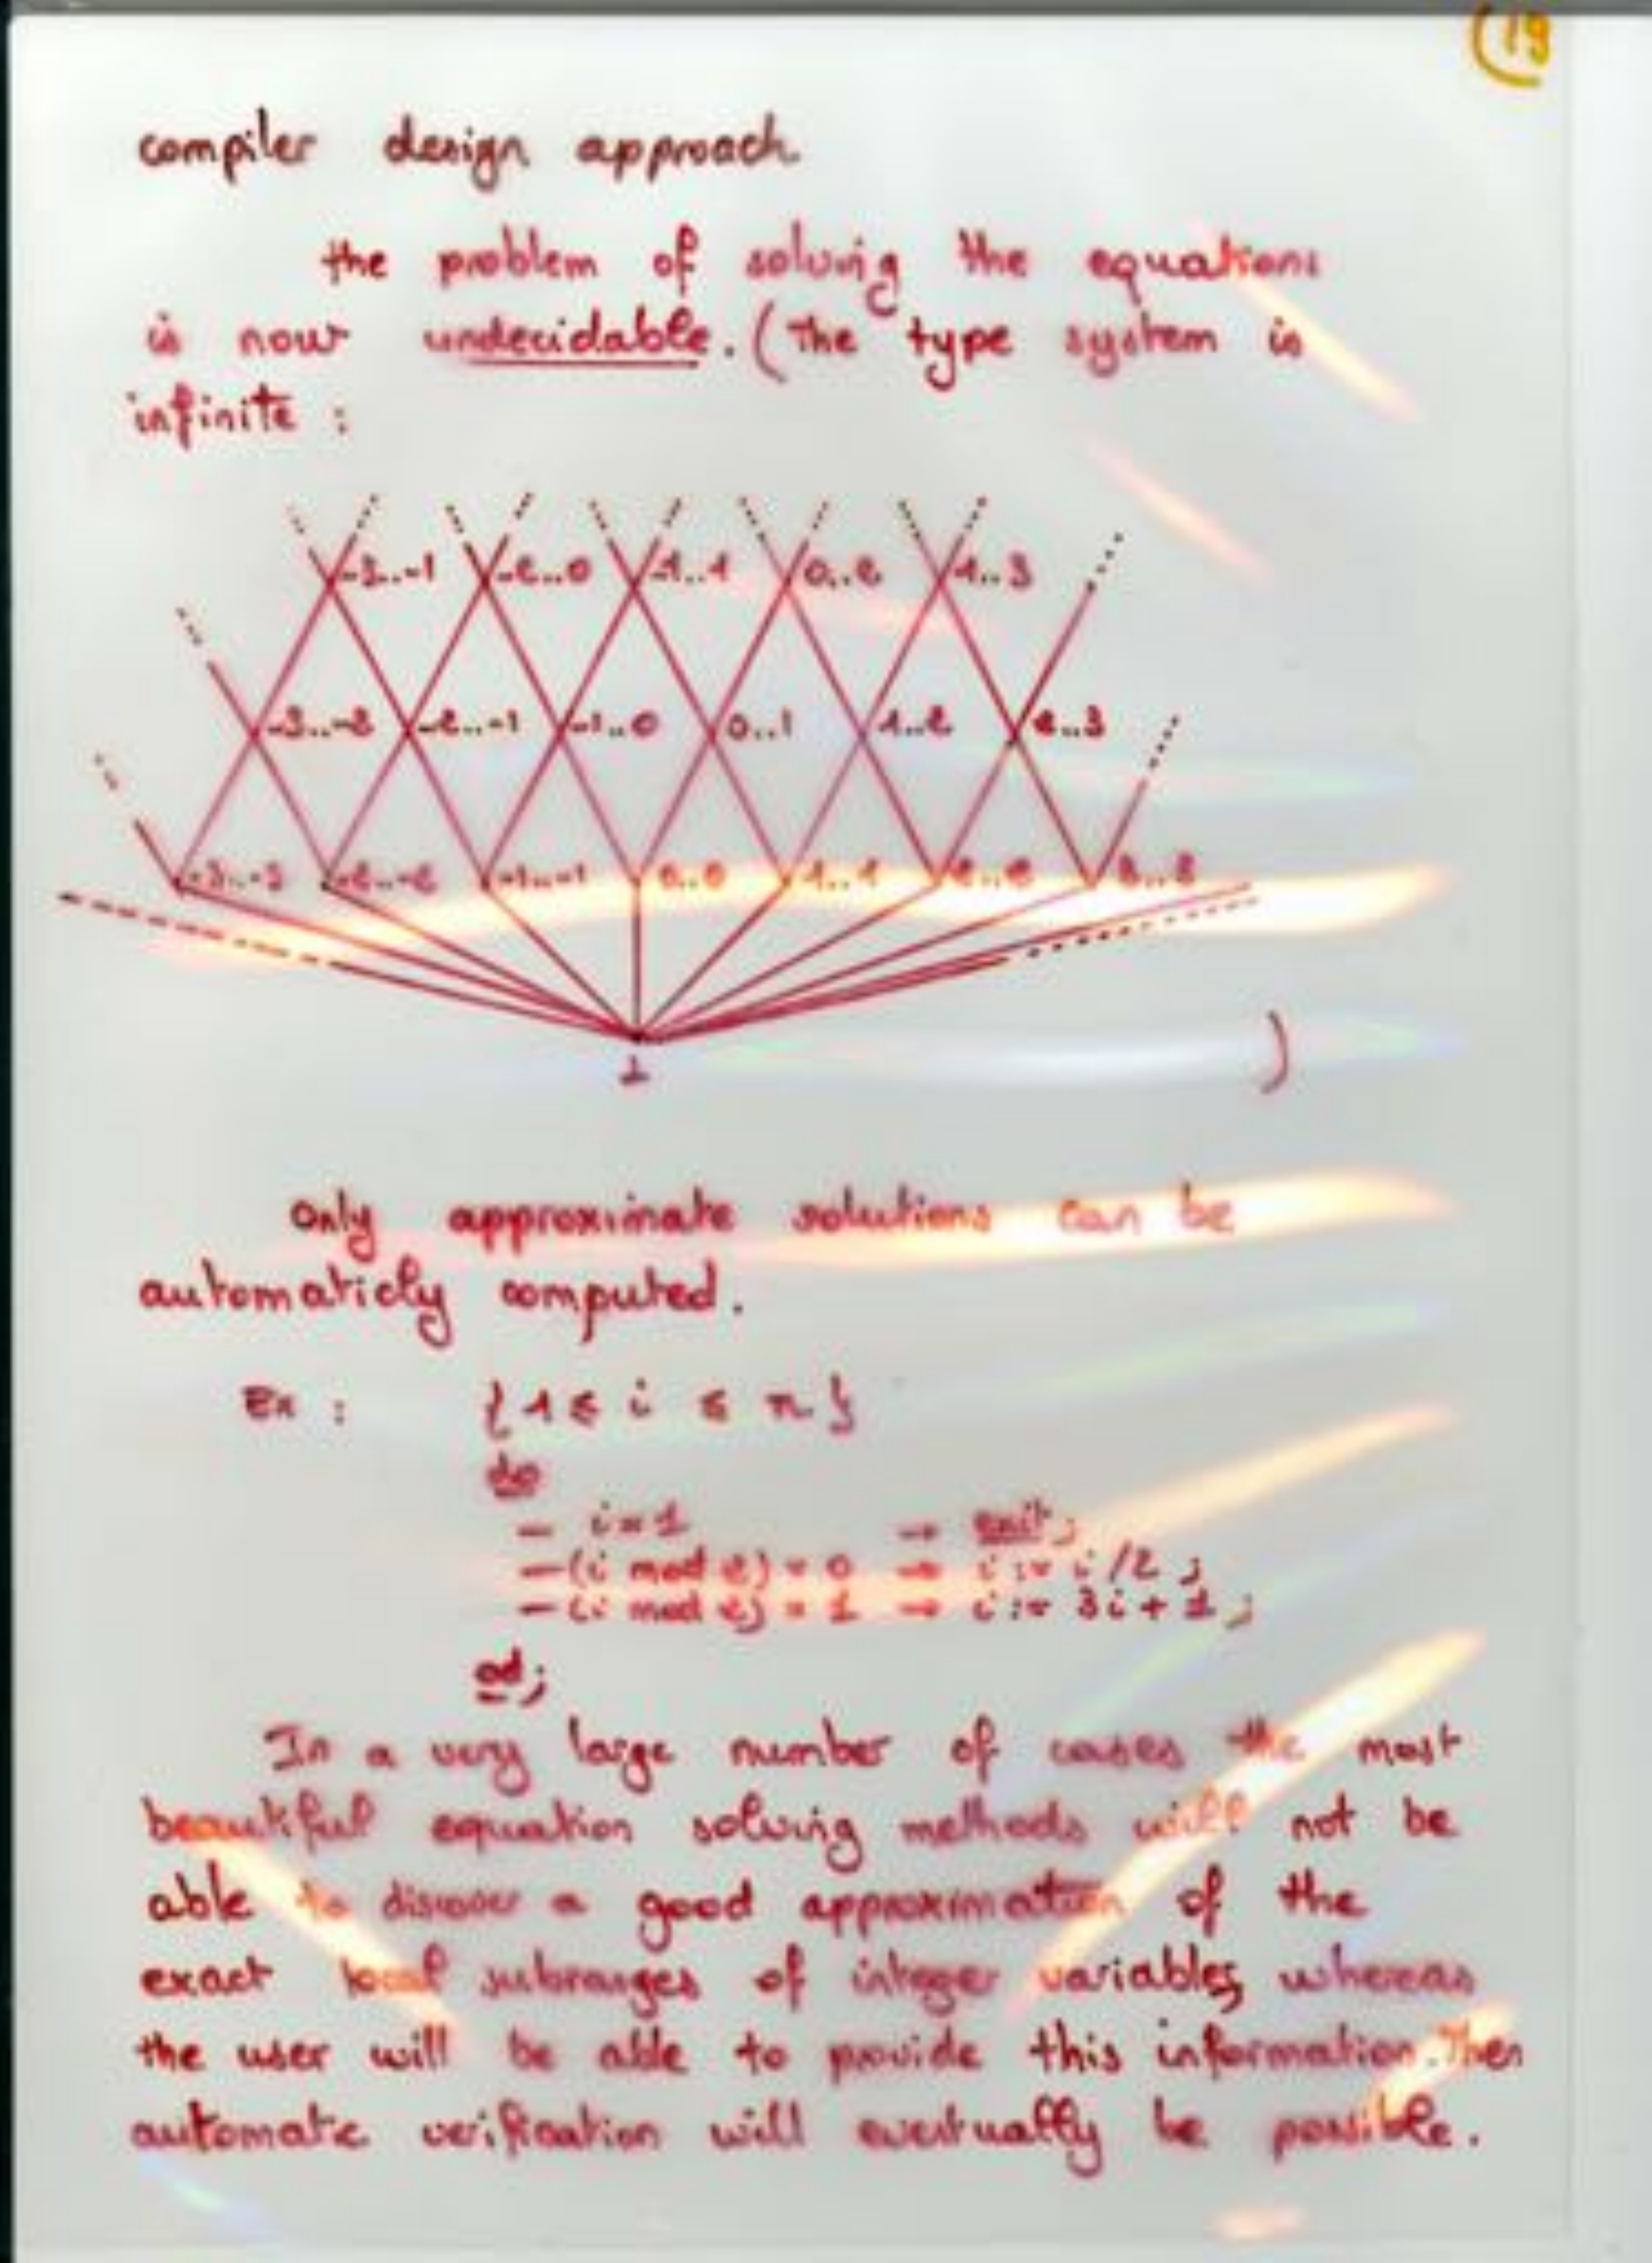 (19
compiler design approach.
the problem of solving the equations
is now undecidable. (The type system is
infinite :
-3..-1 -2..0 -1..1 0..2 1..3
-3..-2 -2..-1 -1..0 0..1 1..2 2..3
-3..-3 -2..-2 -1..-1 0..0 1..1 2..2 3..3
⊥
)
Only approximate solutions can be
automaticly computed.
Ex : {1 ≤ i ≤ n}
do
— i=1 → exit;
— (i mod 2) = 0 → i := i/2 ;
— (i mod 2) = 1 → i := 3i + 1 ;
od;
In a very large number of cases the most
beautiful equation solving methods will not be
able to discover a good approximation of the
exact local subranges of integer variables, whereas
the user will be able to provide this information. Then
automatic verification will eventually be possible.